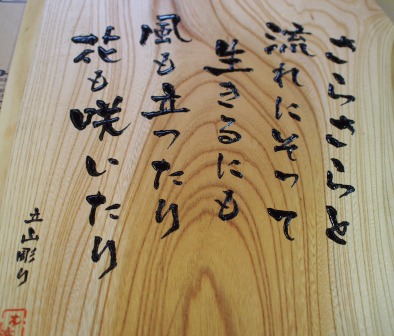 さらさらと
流れにそって
生きるにも
風も立ったり
花も咲いたり
立山彫り